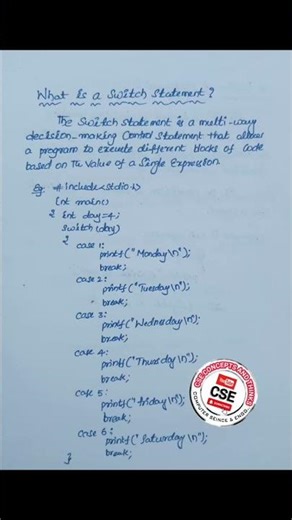 What is a Switch Statement?
The Switch Statement is a multi-way
decision-making Control Statement that allows
a program to execute different blocks of Code
based on The value of a Single Expression
Eg: #include<stdio.h>
int main()
{ int day=4;
switch(day)
{
case 1:
printf("Monday\n");
break;
case 2:
printf("Tuesday\n");
break;
case 3:
printf("Wednesday\n");
break;
case 4:
printf("Thursday\n");
break;
case 5:
printf("friday\n");
break;
case 6:
printf("Saturday\n");
break;
}
CSE CONCEPTS AND THINGS
CSE
COMPUTER SCIENCE & ENGG.